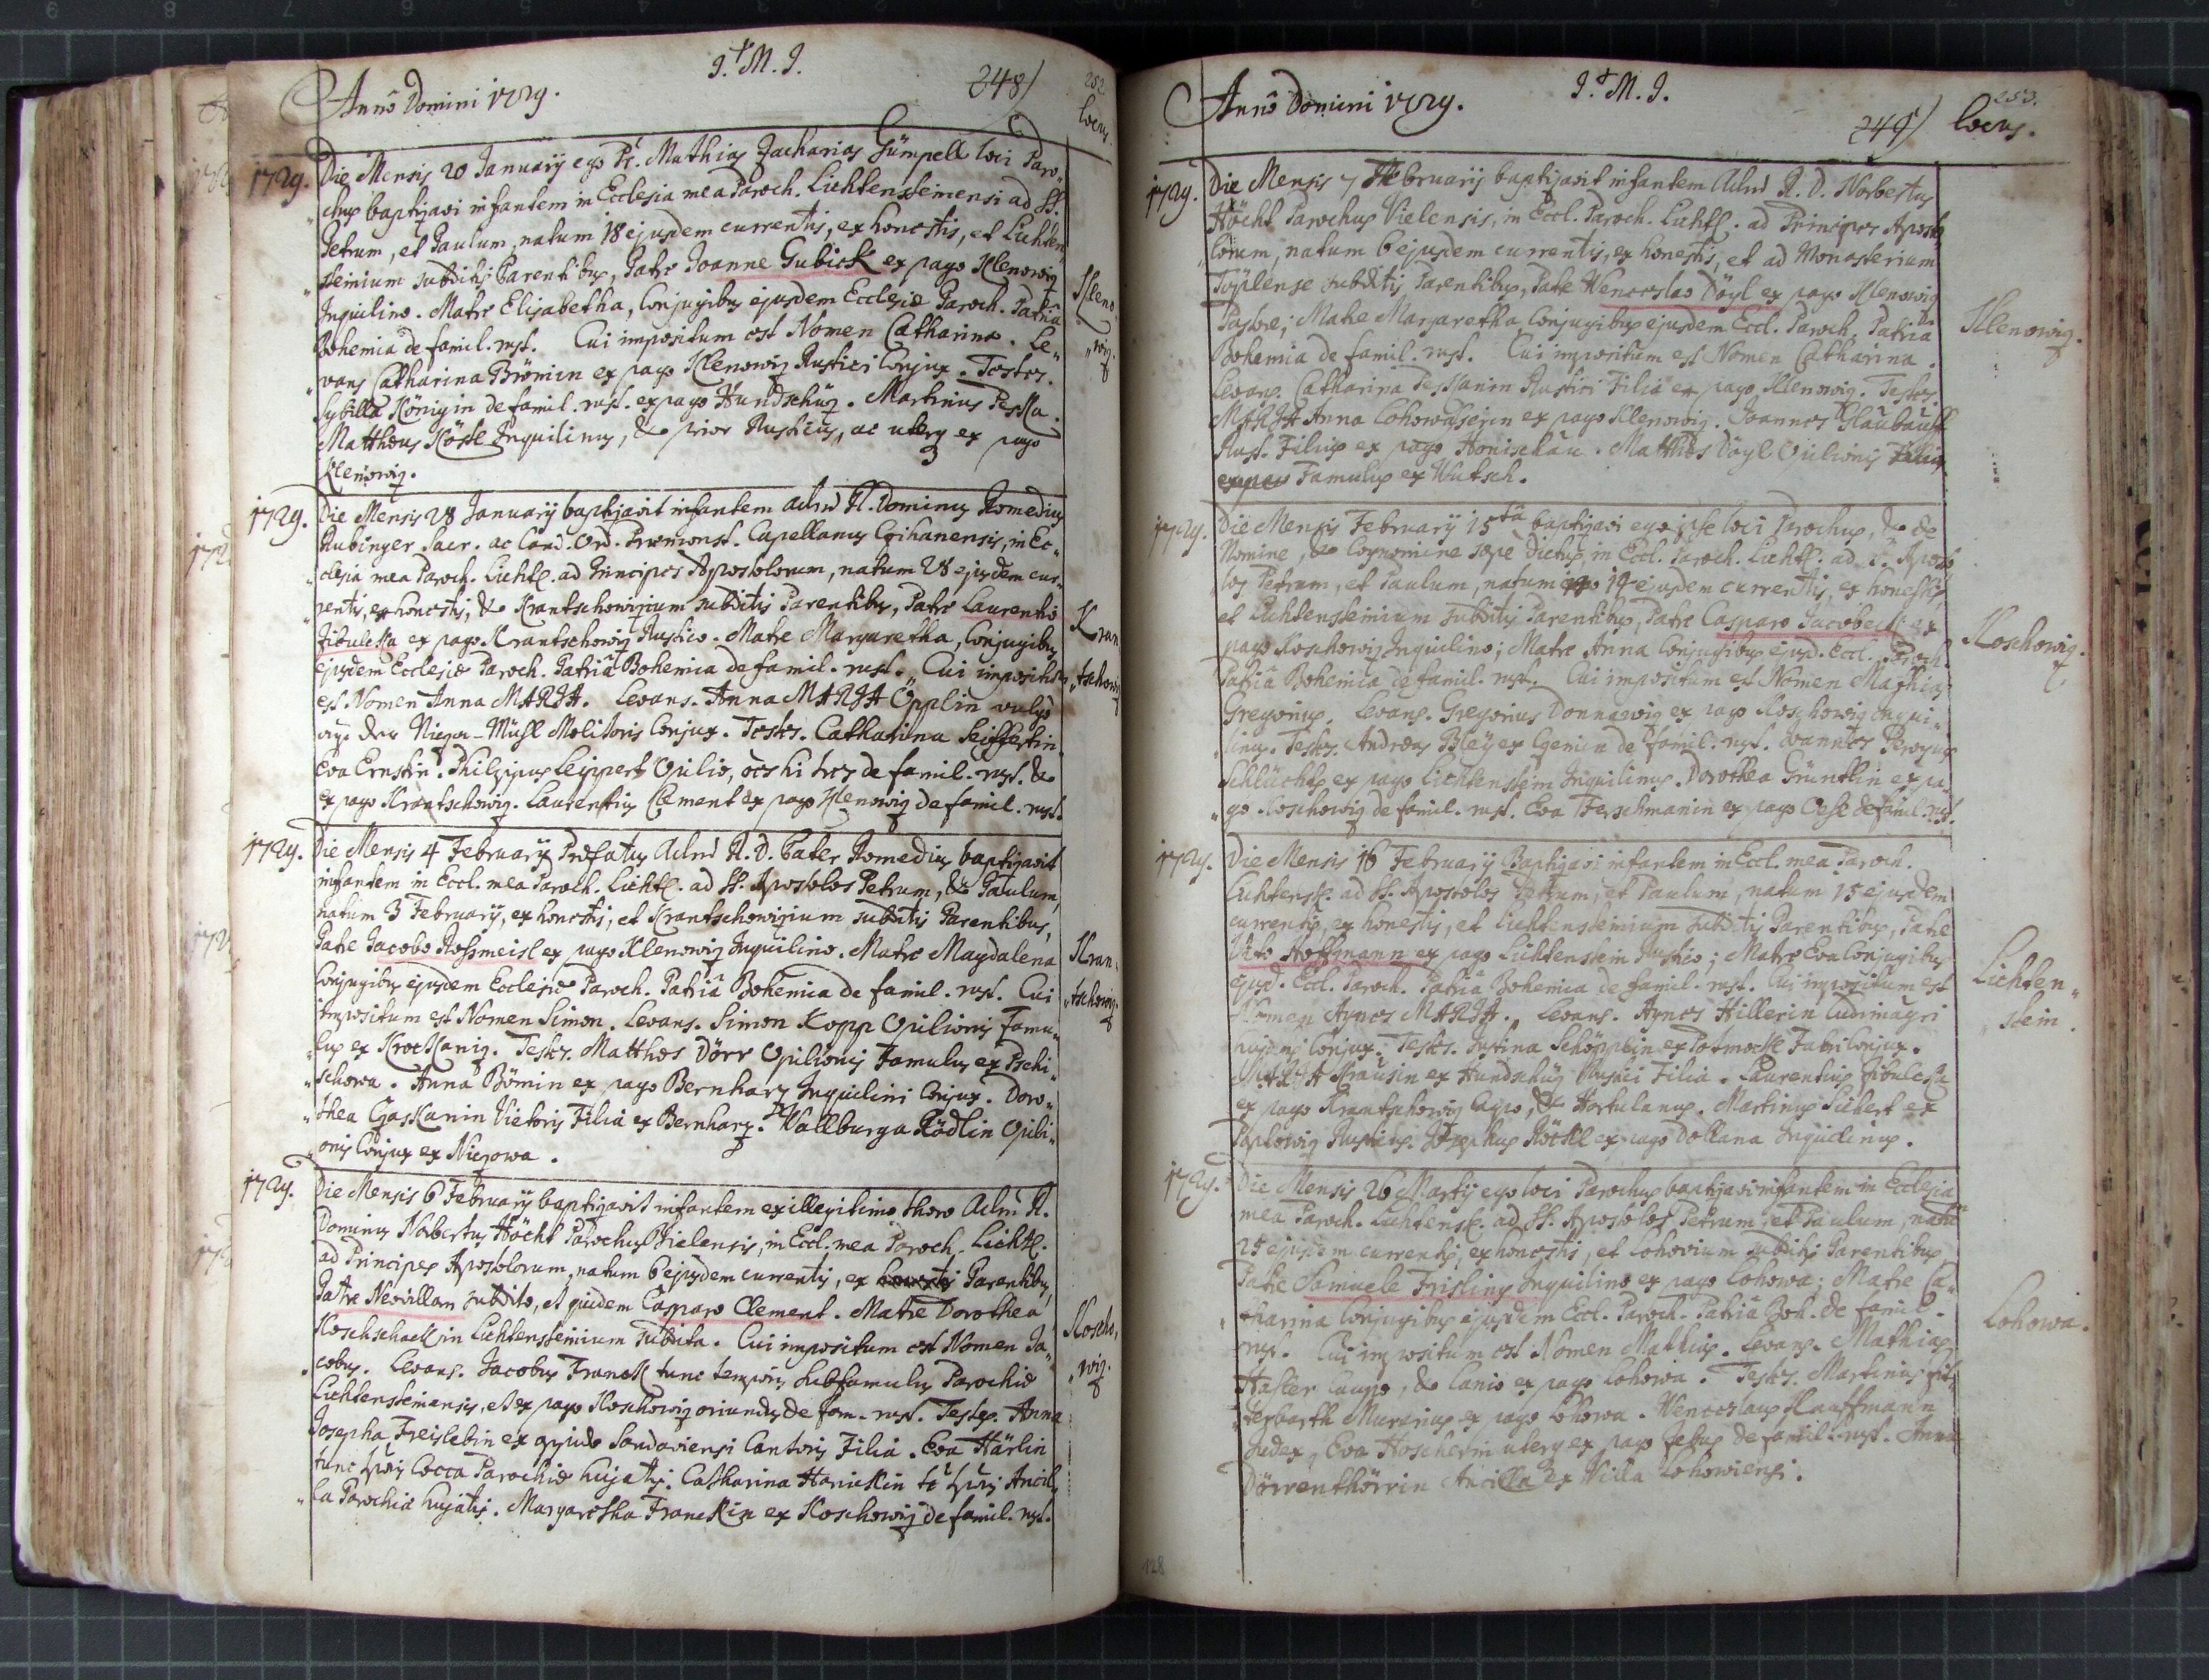 J. M. J.
Anno Domini 1729.
248/
282
locus
1729. Die Mensis 20 Januarij ego Pr. Mathias Zacharias Gümpell loci Paro„
chus baptizavi infantem in Ecclesia mea Paroch. Lichtensteinensi ad SS.
Petrum, et Paulum, natum 18 ejusdem currentis, ex honestis, et Lichten„
steinium subditis Parentibus, Patre Joanne Gubick ex pago Klenowiz
Inquilino. Matre Elisabetha, Conjugibus ejusdem Ecclesiæ Paroch. Patriâ
Bohemia de famil. rust. Cui impositum est Nomen Catharina. Le„
vans Catharina Brömin ex pago Klenowiz Rustici Conjux. Testes.
Sybilla Königin de famil. rust. ex pago Hundschüz. Martinus Peska.
Matthæus Köstl Inquilinus, & prior Rusticus, ac uterq ex pago
Klenowiz.
Kleno„
„wiz.
1729. Die Mensis 28 Januarij baptizavit infantem adm R. Dominus Romedius
Rubinger Sacr. ac Cand. Ord. Præmonst. Capellanus Czihanensis, in Ec„
clesia mea Paroch. Lichtl. ad Principes Apostolorum, natum 28 ejusdem cur„
rentis, ex honestis, & Krantschowizium subditis Parentibus, Patre Laurentio
Zibulcka ex pago Krantschowiz Rustico. Matre Margaretha, Conjugibus
ejusdem Ecclesiæ Paroch. Patriâ Bohemia de famil. rust. Cui impositum
est Nomen Anna MARIA. Levans. Anna MARIA Opplin vulgo
der Niezor-Mühl Molitoris Conjux. Testes. Catharina Seiffertin.
Eva Ernstin. Philippus Leippert Opilio, hi tres de famil. rust. &
ex pago Krantschowiz. Laurentius Clement ex pago Klenowiz de famil. rust.
Kran„
„tschowiz
1729. Die Mensis 4 February Præfatus Adm R. D. Pater Romedius baptizavit
infantem in Eccl. mea Paroch. Lichtl. ad SS. Apostolos Petrum, & Paulum,
natum 3 February, ex honestis, et Krantschowizium subditis Parentibus,
Patre Jacobo Rossmeisl ex pago Klenowiz Inquilino. Matre Magdalena
Conjugibus ejusdem Ecclesiæ Paroch. Patriâ Bohemia de famil. rust. Cui
impositum est Nomen Simon. Levans. Simon Kopp Opilionis Famu„
lus ex Krockaniz. Testes. Matthæs Dörr Opilionis Famulus ex Pschi„
„schowa. Anna Bömin ex pago Bernharz Inquilini Conjux. Doro„
„thea Czaskanin Vietoris Filia ex Bernharz. Wallburga Rödlin Opili„
„onis Conjux ex Niezowa.
Kran„
„tschowiz.
1729. Die Mensis 6 February baptizavit infantem ex illegitimo thoro Adm R.
Dominus Norbertus Höcht Parochus Vielensis, in Eccl. mea Paroch. Lichtl.
ad Principes Apostolorum, natum 6 ejusdem currentis, ex honestis Parentibus,
Patre Nevillam subdito, et quidem Casparo Clement. Matre Dorothea
Koschschackin Lichtensteinium subdita. Cui impositum est Nomen Ja„
cobus. Levans. Jacobus Franck tunc temporis Subfamulus Parochiæ
Lichtensteinensis, et ex pago Koschowiz oriundus de fam. rust. Testes. Anna
Josepha Freislebin ex oppido Sandaviensi Cantoris Filia. Eva Härlin
tunc Cocca Parochiæ hujatis. Catharina Hanickin Ancil„
„la Parochiæ hujatis. Margaretha Franckin ex Koschowiz de famil. rust.
Koscho„
„wiz.
J. M. J.
Anno Domini 1729.
249/
253.
locus.
1729. Die Mensis 7 Februarij baptizavit infantem Adm R. D. Norbertus
Höcht Parochus Vielensis, in Eccl. Paroch. Lichtl. ad Principes Aposto„
„lorum, natum 6 ejusdem currentis, ex honestis, et ad Monasterium
Töplense subditis Parentibus, Patre Wenceslao Döyl ex pago Klenowiz
Pastore; Matre Margaretha Conjugibus ejusdem Eccl. Paroch. Patriâ
Bohemia de famil. rust. Cui impositum est Nomen Catharina.
Levans. Catharina Peskanin Rustici Filia ex pago Klenowiz. Testes.
MARIA Anna Lohowaserin ex pago Klenowiz. Joannes Klaubauff
Rust. Filius ex pago Honischau. Matthæs Döyl Opilionis
Famulus ex Wutsch.
Klenowiz.
1729. Die Mensis February 15ta baptizavi ego ipse loci Parochus, & de
Nomine, & Cognomine sæpe dictus, in Eccl. Paroch. Lichtl. ad S. Aposto„
los Petrum, et Paulum, natum 14 ejusdem currentis, ex honestis,
et Lichtensteinium subditis Parentibus, Patre Casparo Jacobeck ex
pago Koschowiz Inquilino; Matre Anna Conjugibus ejusd. Eccl. Paroch.
Patriâ Bohemia de famil. rust. Cui impositum est Nomen Mathias
Gregorius. Levans. Gregorius Donnawiz ex pago Koschowiz Inqui„
linus. Testes. Andreas Bley ex Czenin de famil. rust. Joannes
Schlücht ex pago Lichtenstein Inquilinus. Dorothea Grüntlin ex pa„
„go Koschowiz de famil. rust. Eva Ferschmanin ex pago de famil. rust.
Koschowiz.
1729. Die Mensis 16 February Baptizavi infantem in Eccl. mea Paroch.
Lichtenst. ad SS. Apostolos Petrum, et Paulum, natum 15 ejusdem
currentis, ex honestis, et Lichtensteinium subditis Parentibus, Patre
Vito Hoffmann ex pago Lichtenstein Rustico; Matre Eva Conjugibus
ejusd. Eccl. Paroch. Patriâ Bohemia de famil. rust. Cui impositum est
Nomen Agnes MARIA. Levans. Agnes Hillerin Ludimagri
Conjux. Testes. Justina Schopplin ex Potmockl Fabri Conjux.
MARIA Krausin ex Hundschüz Rustici Filia. Laurentius Zibulcka
ex pago Krantschowiz Caupo, & Hortulanus. Martinus Sichert ex
Paplowiz Rusticus. Josephus Köckl ex pago Dollana Inquilinus.
Lichten„
„stein.
1729. Die Mensis 26 Martij ego loci Parochus baptizavi infantem in Ecclesia
mea Paroch. Lichtenst. ad SS. Apostolos Petrum, et Paulum, natū
25 ejusdem currentis, ex honestis, et Lohovium subditis Parentibus,
Patre Samuele Frisling Inquilino ex pago Lohowa; Matre Ca„
„tharina Conjugibus ejusdem Eccl. Paroch. Patriâ Boh. de famil.
rust. Cui impositum est Nomen Mathias. Levans. Mathias
Haster Caupo, & Lanio ex pago Lohowa. Testes. Martinus
Murarius ex pago Lohowa. Wenceslaus Kauffmann
Judex, Eva Hoscherin uterq ex pago de famil. rust. Anna
Dörrenthörrin Ancilla ex Villa Lohowiensi.
Lohowa.
128